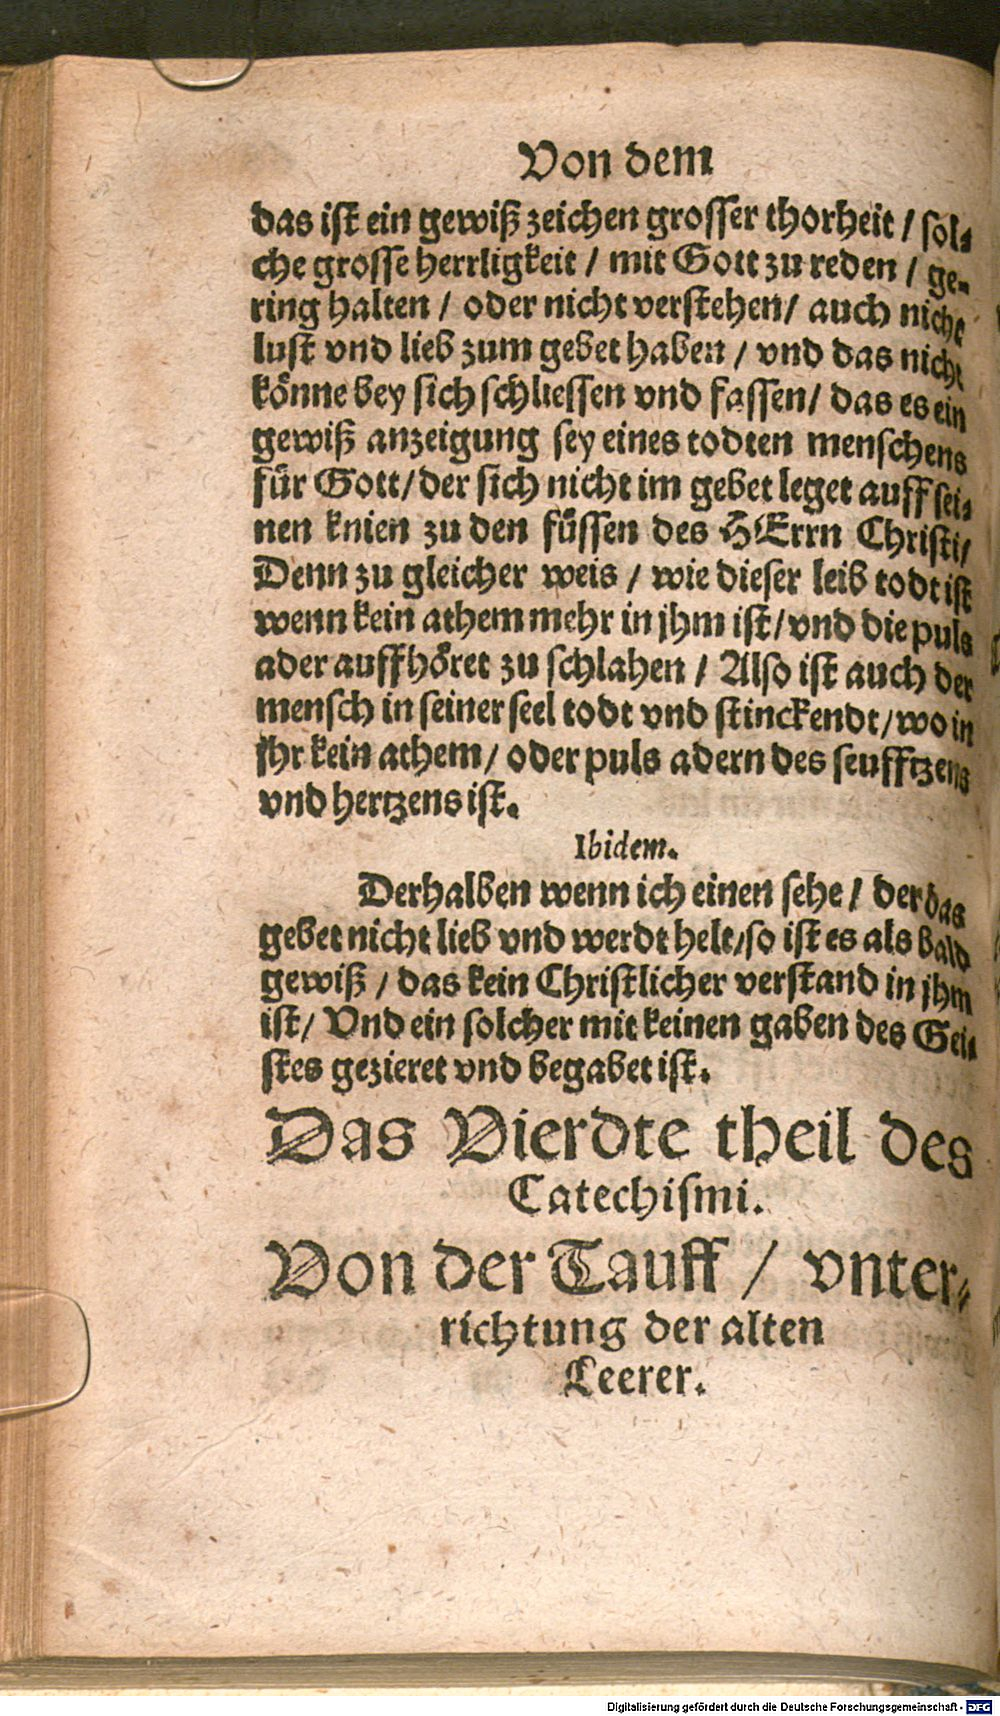 Von dem
das ist ein gewiß zeichen grosser thorheit / sol⸗
che grosse herrligkeit / mit Gott zu reden / ge⸗
ring halten / oder nicht verstehen / auch nicht
lust vnd lieb zum gebet haben / vnd das nicht
könne bey sich schliessen vnd fassen / das es ein
gewiß anzeigung sey eines todten menschens
für Gott / der sich nicht im gebet leget auff sei⸗
nen knien zu den füssen des HErrn Christi /
Denn zu gleicher weis / wie dieser leib todt ist
wenn kein athem mehr in jhm ist / vnd die puls
ader auffhöret zu schlahen / Also ist auch der
mensch in seiner seel todt vnd stinckendt / wo in
jhr kein athem / oder puls adern des seufftzens
vnd hertzens ist.
Ibidem.
Derhalben wenn ich einen sehe / der das
gebet nicht lieb vnd werdt helt / so ist es als bald
gewiß / das kein Christlicher verstand in jhm
ist / Vnd ein solcher mit keinen gaben des Gei⸗
stes gezieret vnd begabet ist.
Das Vierdte theil des
Catechismi.
Von der Tauff / vnter⸗
richtung der alten
Leerer.
Digitalisierung gefördert durch die Deutsche Forschungsgemeinschaft - DFG